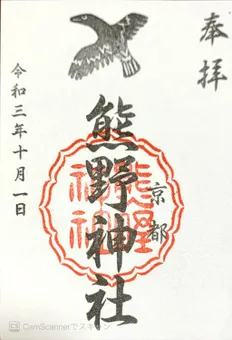 奉拝
京都
熊野神社
令和三年十月一日
熊野
神社
CamScannerでスキャン